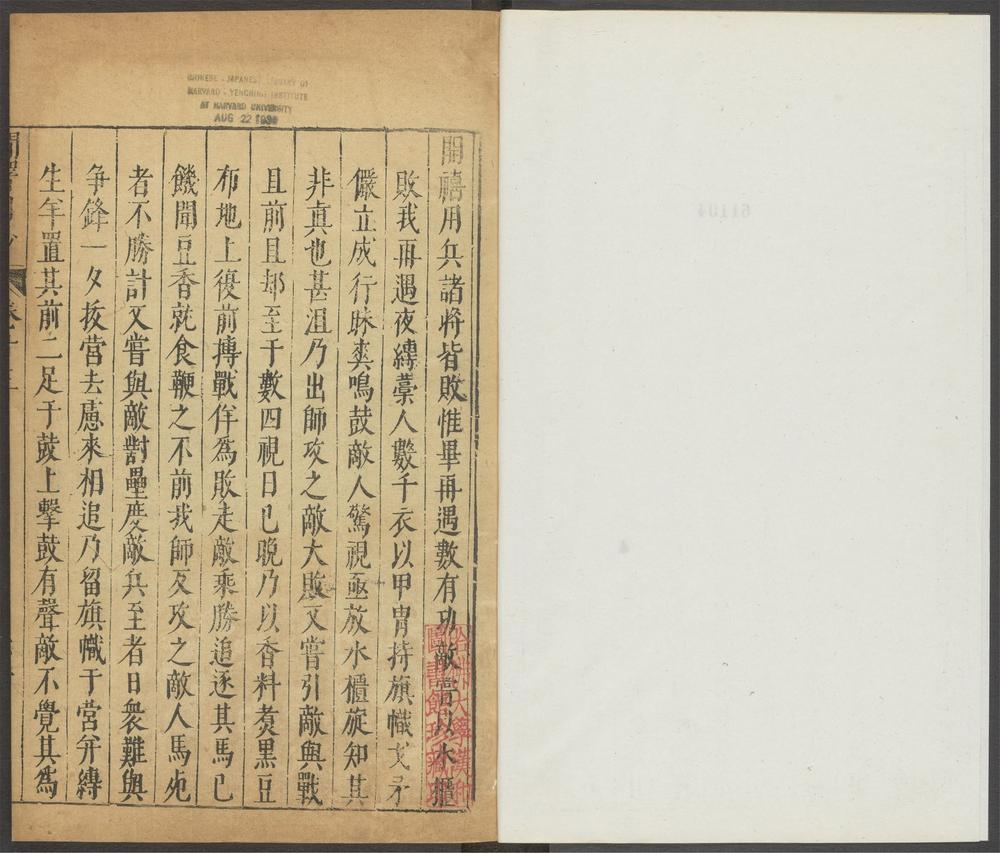 CHINESE - JAPANESE LIBRARY OF
HARVARD - YENCHING INSTITUTE
AT HARVARD UNIVERSITY
AUG 22
開禧用兵諸將皆敗惟畢再遇數有功敵嘗以水櫃
敗我再遇夜縛藁人數千衣以甲冑持旗幟戈矛
儼立成行昧爽鳴鼓敵人驚視亟放水櫃旋知其
非真也甚沮乃出師攻之敵大敗又嘗引敵與戰
且前且却至于數四視日已晚乃以香料煑黑豆
布地上復前搏戰佯為敗走敵乘勝追逐其馬已
饑聞豆香就食鞭之不前我師反攻之敵人馬死
者不勝計又嘗與敵對壘度敵兵至者日衆難與
争鋒一夕拔營去慮來相追乃留旗幟于營并縛
生羊置其前二足于鼓上擊鼓有聲敵不覺其為
哈佛大學漢和
圖書館珍藏印
61104